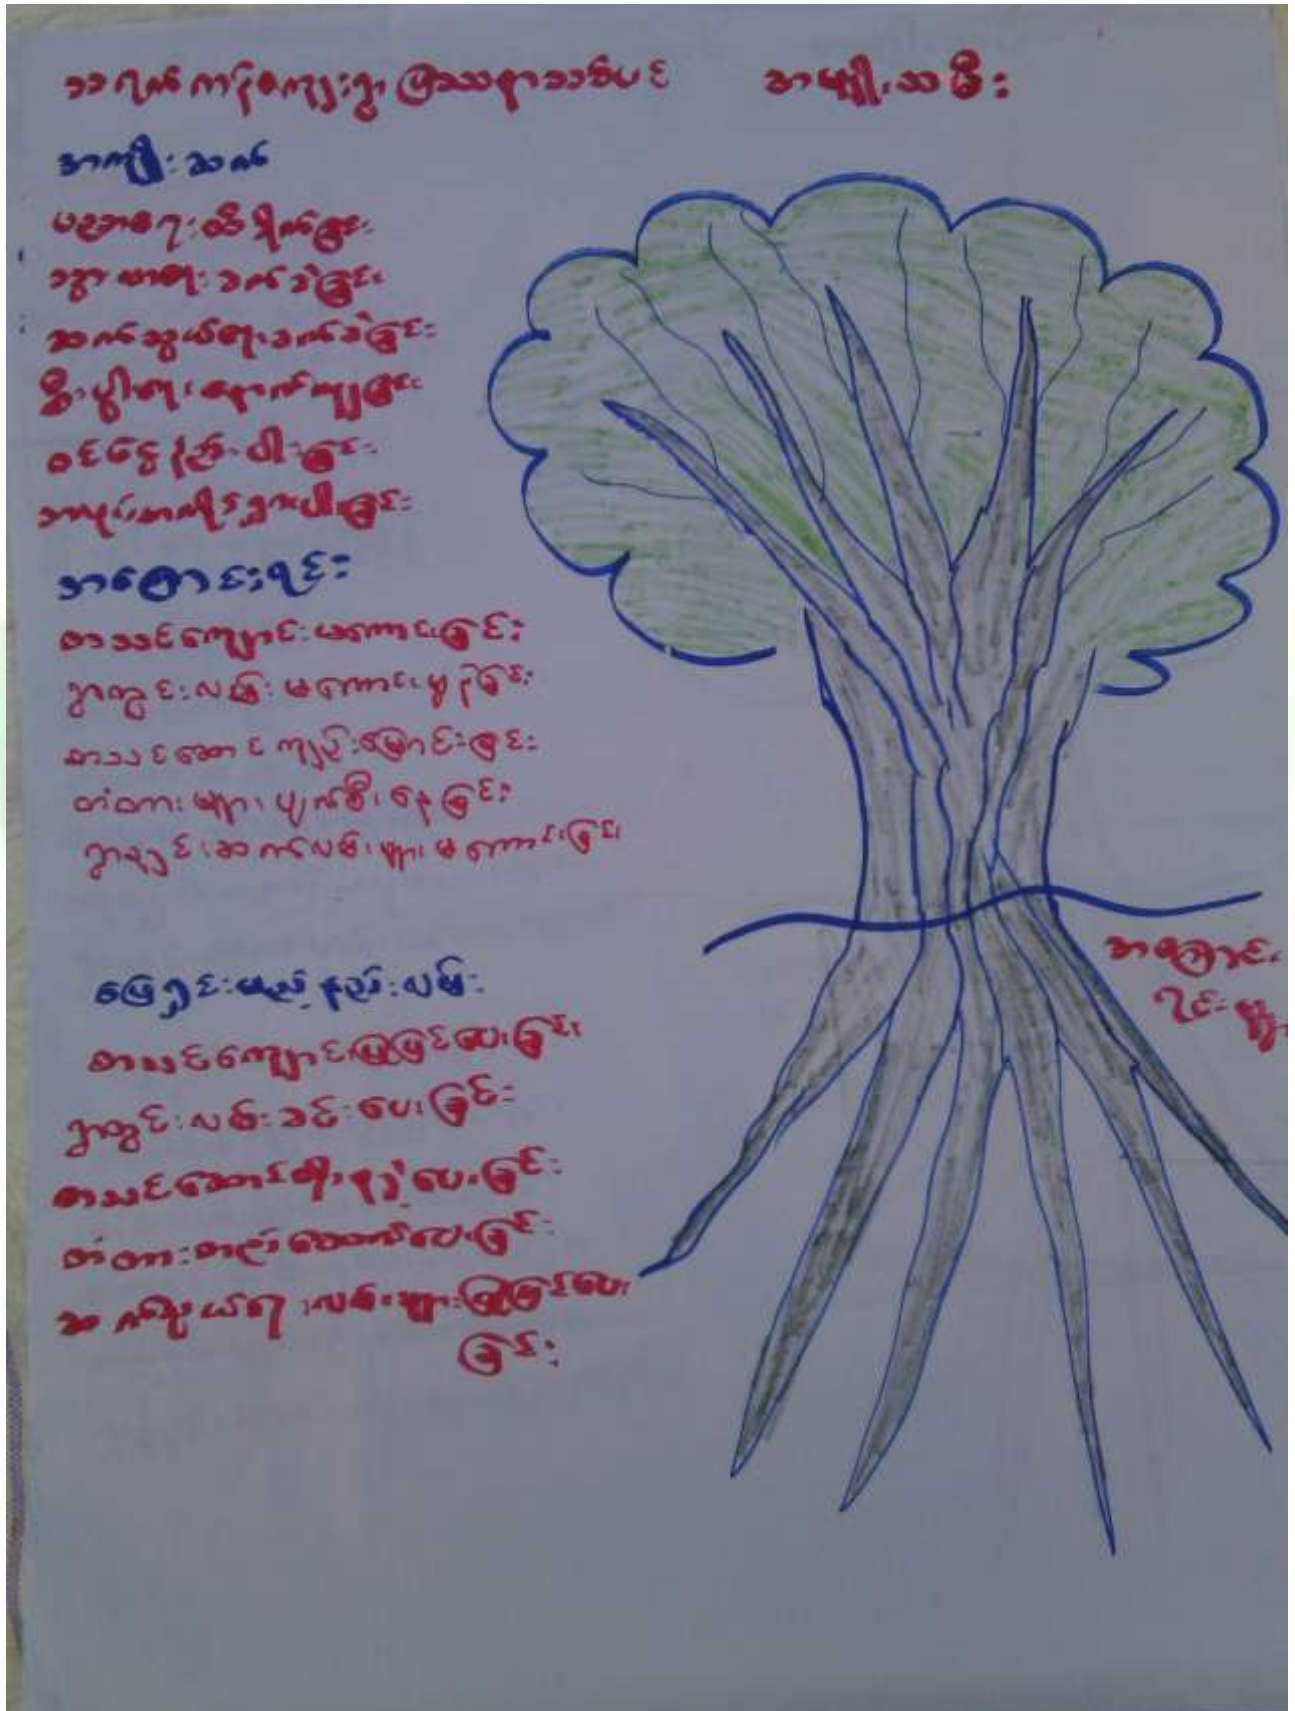 သရက်ကန်ကျေးရွာ ပြဿနာသစ်ပင် အမျိုးသမီး
အကျိုးဆက်
ပညာရေးထိခိုက်ခြင်း
သွားလာရေးခက်ခဲခြင်း
ဆက်သွယ်ရေးခက်ခဲခြင်း
စီးပွါးရေးနောက်ကျခြင်း
ဝင်ငွေနည်းပါးခြင်း
အလုပ်အကိုင်ရှားပါးခြင်း
အကြောင်းရင်း
စာသင်ကျောင်းမကောင်းခြင်း
ရွာတွင်းလမ်းမကောင်းမှုနဲခြင်း
စာသင်ဆောင်ကျဉ်းမြောင်းခြင်း
တံတားများပျက်စီးနေခြင်း
ရွာချင်းဆက်လမ်းများမကောင်းခြင်း
ဖြေရှင်းမည့်နည်းလမ်း
စာသင်ကျောင်းပြုပြင်ပေးခြင်း
ရွာတွင်းလမ်းခင်းပေးခြင်း
စာသင်ဆောင်တိုးချဲ့ပေးခြင်း
တံတားတည်ဆောက်ပေးခြင်း
ဆက်သွယ်ရေးလမ်းများပြုပြင်ပေး
ခြင်း
အကြောင်း
ရင်းမျှား